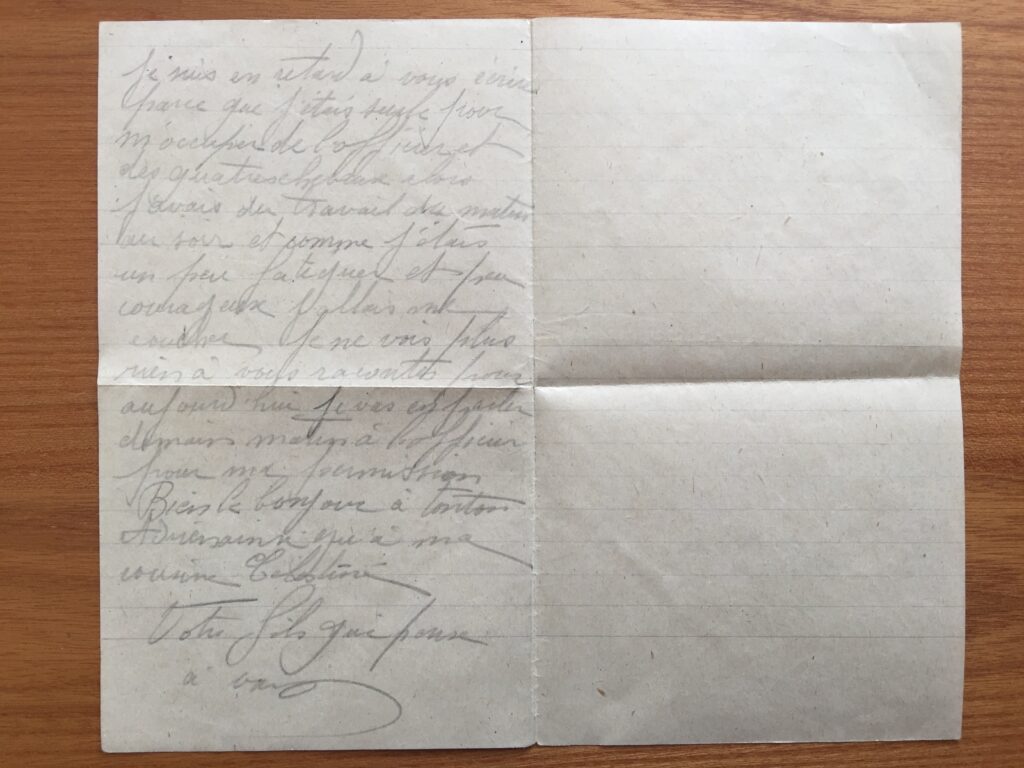 Je suis en retard à vous écrire
parce que j'étais seule pour
m'occuper de l'officier et
des quatres chevaux alors
j'avais du travail du matin
au soir et comme j'étais
un peu fatiguer et peu
courageux j'allais me
coucher Je ne vois plus
rien à vous raconter pour
aujourd'hui Je vas en parler
demain matin à l'officier
pour ma permission
Bien le bonjour à tonton
qu'à ma
cousine Célestine
Votre fils qui pense
à vous